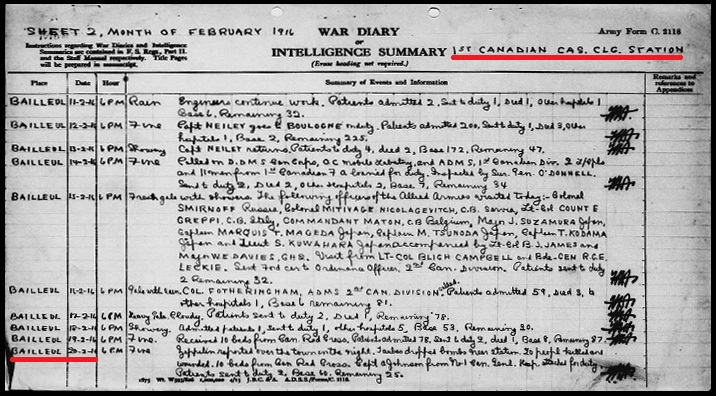 SHEET 2, MONTH OF FEBRUARY 1916
WAR DIARY
Army Form C. 2118
Instructions regarding War Diaries and Intelligence
Summaries are contained in F. S. Regs., Part II.
and the Staff Manual respectively. Title Pages
will be prepared in manuscript.
OR
INTELLIGENCE SUMMARY
1ST CANADIAN CAS. CLG. STATION
(Erase heading not required.)
Place Date Hour Summary of Events and Information Remarks and references to Appendices
BAILLEUL 11-2-16 6PM Rain Engineers continue work. Patients admitted 2, Sent to duty 1, Died 1, Other hospitals 1
Base 6, Remaining 32.
BAILLEUL 12-2-16 6PM Fine Capt NEILEY goes to BOULOGNE on duty. Patients admitted 200, Sent to duty 1, Died 3, Other
hospitals 1, Base 2, Remaining 225.
BAILLEUL 13-2-16 6PM Showery Capt NEILEY returns, Patients to duty 4, died 2, Base 172, Remaining 47.
BAILLEUL 14-2-16 6PM Fine Called on D.D.M.S Can Corps, O.C mobile and A.D.M.S, 1st Canadian Div.
and 11 men from 1st Canadian for duty. Inspected by Sur. Gen. O'DONNELL.
Sent to duty 2, Died 2, Other Hospitals 2, Base 7, Remaining 34
BAILLEUL 15-2-16 6PM Fresh gale with showers. The following officers of the Allied Armies visited today:- Colonel
SMIRNOFF Russia, Colonel MITIVAGE NICOLAGEVITCH, C.B. Servia, Lt-Col COUNT E
GREPPI, C.B. Italy, COMMANDANT MATON, C.B Belgium, Major J. SUZAMURA Japan,
Captain MARQUIS T. MAGEDA Japan, Captain M. TSUNODA Japan, Captain T. KODAMA
Japan and Lieut S. KUWAHARA Japan accompanied by Lt-Col B.J. JAMES and
Major W.E DAVIES, GHS. Visit from LT-COL BLIGH CAMPBELL and Bde-GEN R.G.E.
LECKIE. Sent Ford car to Ordnance Officer 2nd Can. Division. Patients sent to duty
2 Remaining 32.
BAILLEUL 16-2-16 6PM Gale with rain. COL. FOTHERINGHAM, ADMS 2nd CAN. DIVISION called. Patients admitted 59, Died 3, to
other hospitals 1, Base 6 remaining 81.
BAILLEUL 17-2-16 6PM Heavy Gale, Cloudy. Patients sent to duty 2, Died 1, Remaining 78.
BAILLEUL 18-2-16 6PM Showery. Admitted patients 1, Sent to duty 1, other hospitals 5, Base 53, Remaining 20.
BAILLEUL 19-2-16 6PM Fine. Received 10 beds from Can Red Cross, Patients admitted 78, Sent to duty 2, died 1, Base 8, Remaining 87.
BAILLEUL 20-2-16 6PM Fine Zeppelin reported over the town in the night. Taubes dropped bombs near station. 20 people killed and
wounded. 10 beds from Can Red Cross. Capt A Johnson from No 1 Can. Genl. Hosp. attached for duty
Patients sent to duty 2, Base 60. Remaining 25.
1875 Wt. W593/826 1,000,000 4/15 J.B.C. & A. A.D.S.S./Forms/C. 2118.